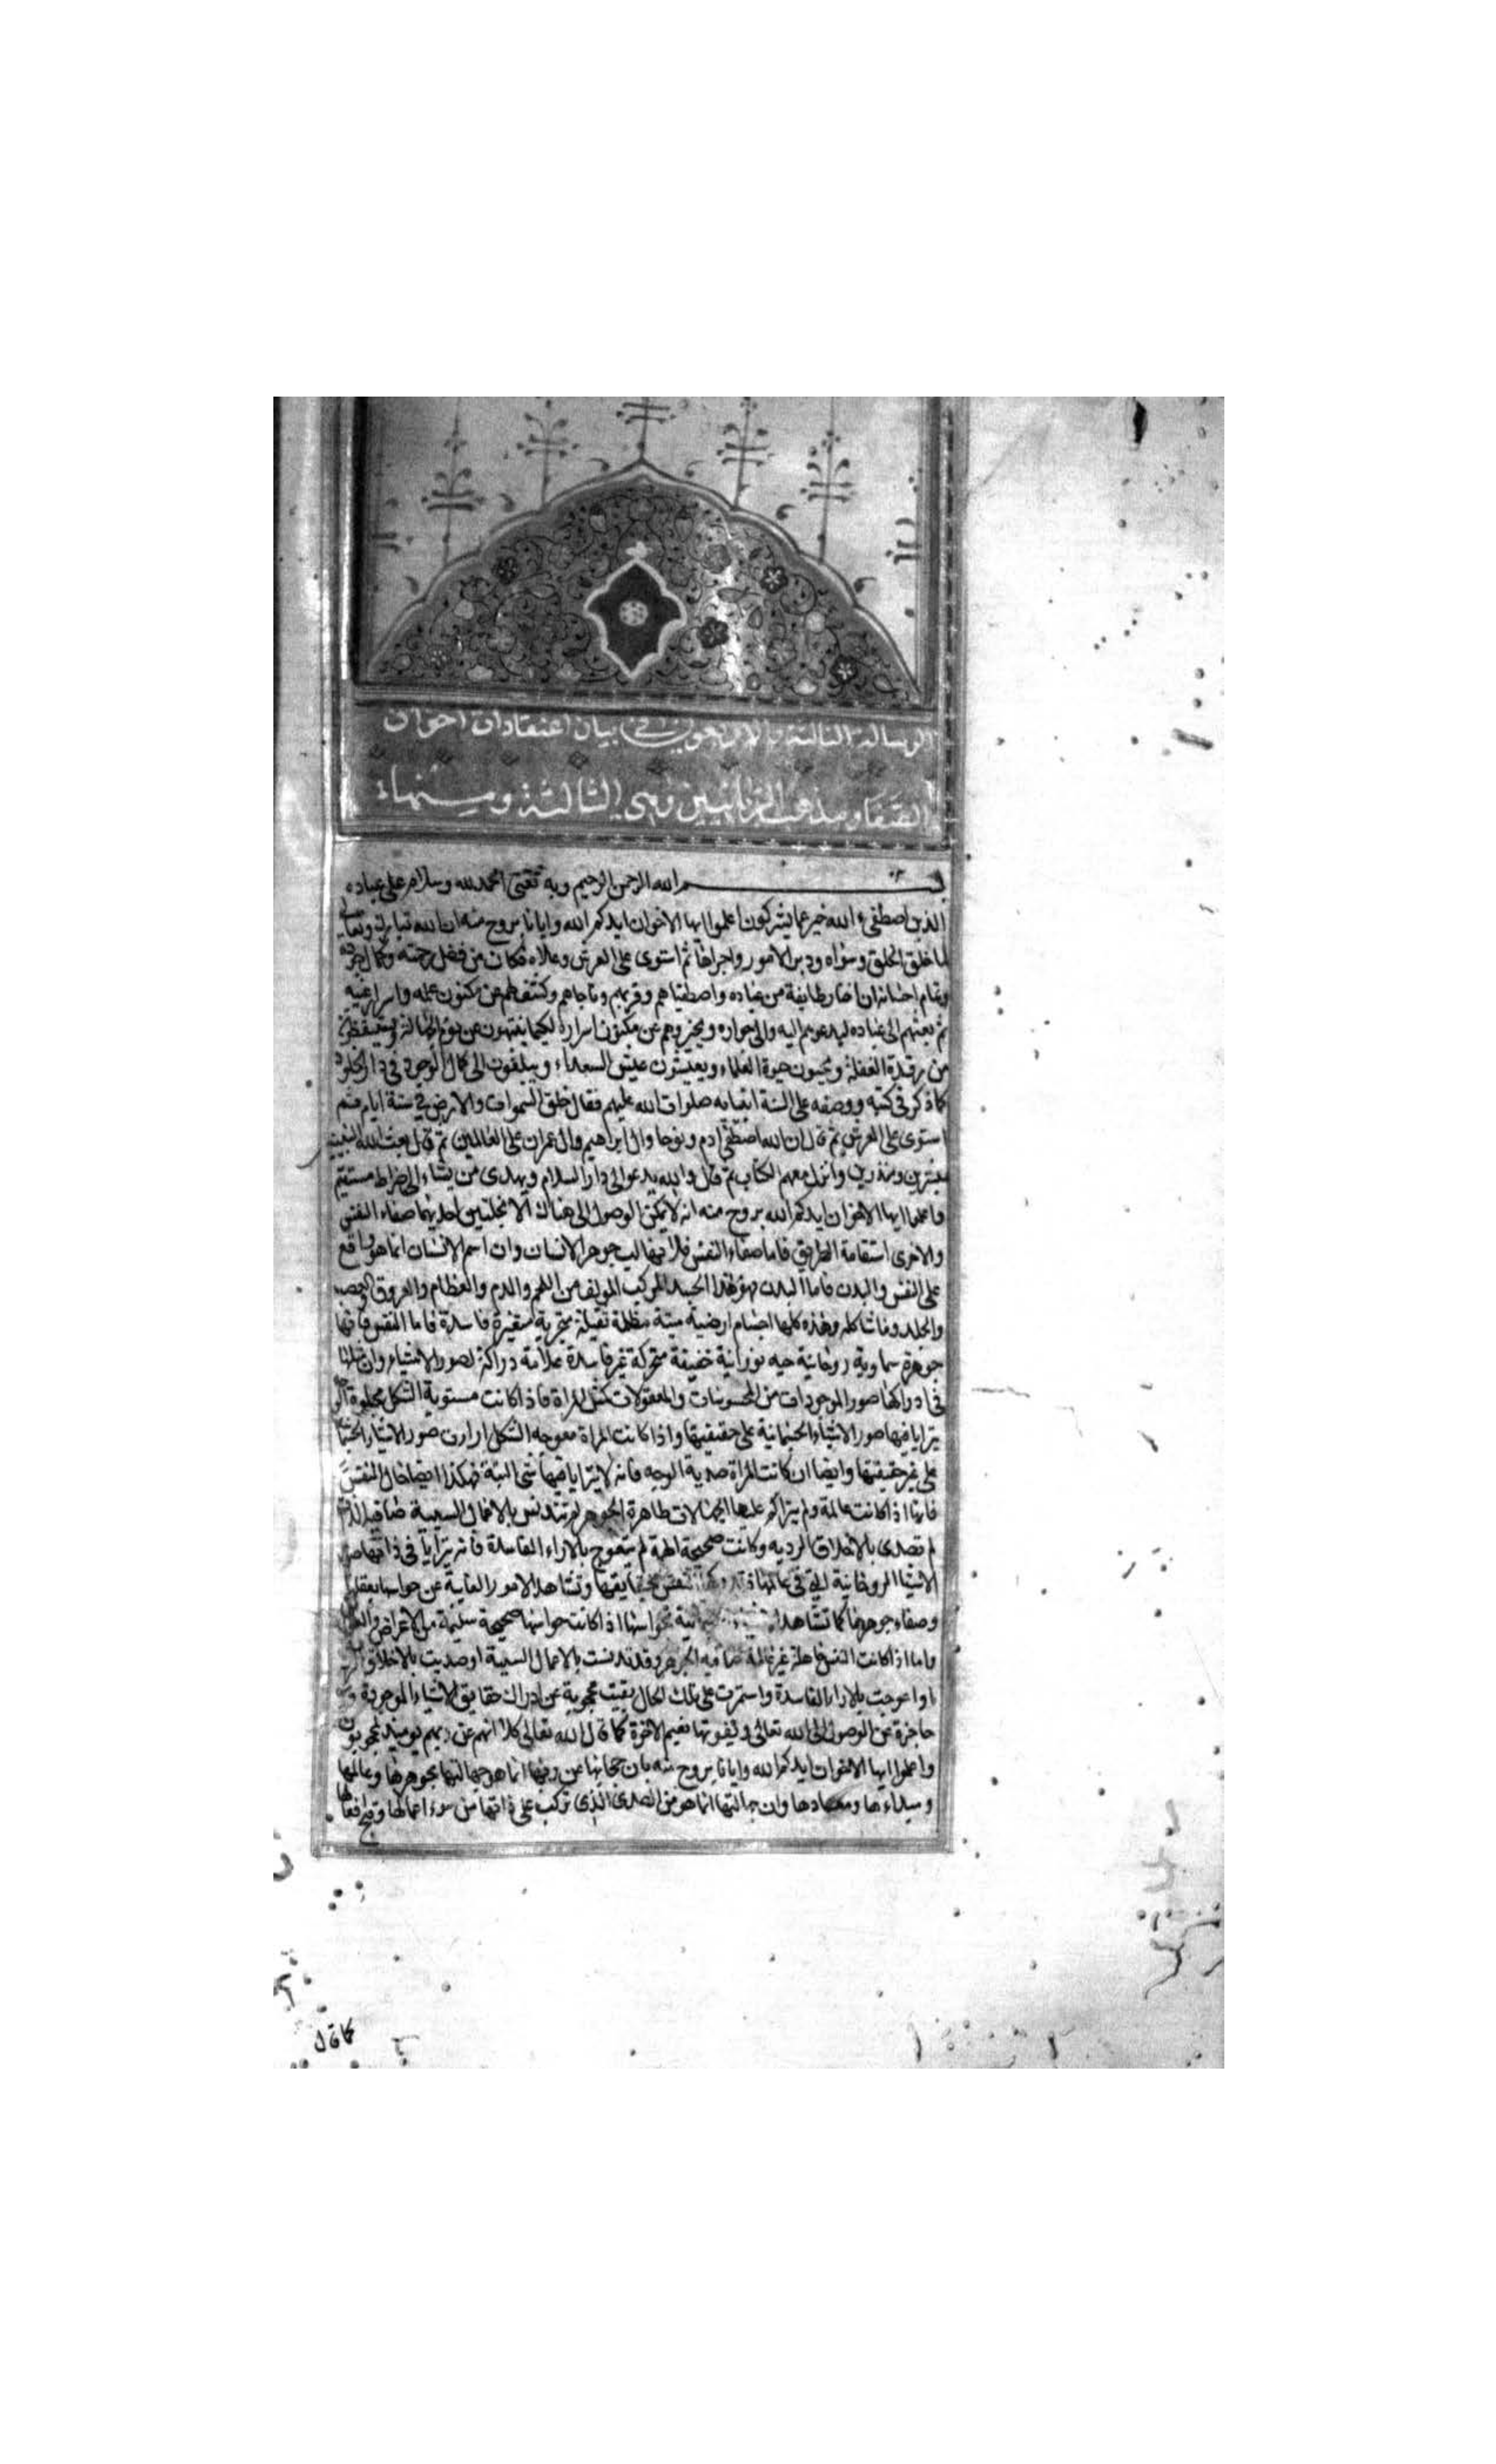 الرسالة الثالثة والاربعون في بيان اعتقادات اخوان
الصفا ومذهب الربانيين وهي الثالثة ومنها
بسم الله الرحمن الرحيم وبه ثقتي الحمد لله وسلام على عباده
الذين اصطفى ء الله خير عما يشركون اعلموا ايها الاخوان ايدكم الله وايانا بروح منه ان الله تبارك وتعالى
لما خلق الخلق وسواه ودبر الامور واجراها ثم استوى على العرش وعلاه فكان من فضل رحمته وكمال جوده
وتمام احسانه ان اختار طايفة من عباده واصطفاهم وقربهم وناجاهم وكشف لهم عن مكنون علمه واسرار غيبه
ثم بعثهم الى عباده ليدعوهم اليه والى جواره ويخبروهم عن مكنون اسراره لكيما ينتبهون عن نوم الجهالة ويستيقظون
من رقدة الغفلة ويحيون حيوة العلماء ويعيشون عيش السعداء ويبلغون الى كمال الوجود في دار الخلود
كما ذكر في كتبه ووصفه على السنة انبيايه صلوات الله عليهم فقال خلق السموات والارض في ستة ايام ثم
استوى على العرش ثم قال ان الله اصطفى ادم ونوحا وال ابراهيم وال عمران على العالمين ثم قال بعث الله النبيين
مبشرين ومنذرين وانزل معهم الكتاب ثم قال والله يدعو الى دار السلام ويهدى من يشاء الى صراط مستقيم
واعلموا ايها الاخوان ايدكم الله بروح منه انه لا يمكن الوصول الى هناك الا بخلتين احديهما صفاء النفس
والاخرى استقامة الطريق فاما صفاء النفس فلانها لب جوهر الانسان وان اسم الانسان انما هو واقع
على النفس والبدن فاما البدن فهو هذا الجسد المركب المولف من اللحم والدم والعظام والعروق والعصب
والجلد وما شاكله وهذه كلها اجسام ارضية ميتة مظلمة ثقيلة متجزية متغيرة فاسدة فاما النفس فانها
جوهرة سماوية روحانية حيه نورانية خفيفة متحركة غير فاسدة علامة دراكة لصور الاشياء وان مثلها
في ادراكها صور الموجودات من المحسوسات والمعقولات كمثل المراة فاذا كانت مستوية الشكل مجلوة الوجه
يترايا فيها صور الاشياء الجسمانية على حقيقتها واذا كانت المراة معوجه الشكل ارات صور الاشياء الجسمانية
على غير حقيقتها وايضا ان كانت المراة صدية الوجه فانه لا يترايا فيها شى البتة فهكذا ايضا حال النفس
فانها اذا كانت عالمة ولم يتراكم عليها الجهالات طاهرة الجوهر لم تتدنس بالاعمال السيية صافية الذات
لم تصدى بالاخلاق الرديه وكانت صحيحة الهمة لم تتعوج بالاراء الفاسدة فانه يترايا في ذاتها صور
الاشيا الروحانية التي في عالمها النفس بحقايقها وتشاهد الامور الغايبة عن حواسها بعقلها
وصفاء جوهرها كما تشاهد بحواسها اذا كانت حواسها صحيحة سليمة من الاعراض
واما اذا كانت النفس جاهلة غير عالمة صافيه الجوهر وقد تدنست بالاعمال السيية او صديت بالاخلاق الردية
او اعوجت بالارا الفاسدة واستمرت على تلك الحال بقيت محجوبة عن ادراك حقايق الاشياء الموجودة
عاجزة عن الوصول الى الله تعالى ويفوتها نعيم الاخرة كما قال الله تعالى كلا انهم عن ربهم يوميذ لمحجوبون
واعلموا ايها الاخوان ايدكم الله وايانا بروح منه بان حجابها عن ربها انما هو جهالتها بجوهرها وعالمها
ومبداءها ومعادها وان جهالتها انما هو من الصدى الذى تركب على ذاتها من سوء اعمالها وقبح افعالها
كما قال